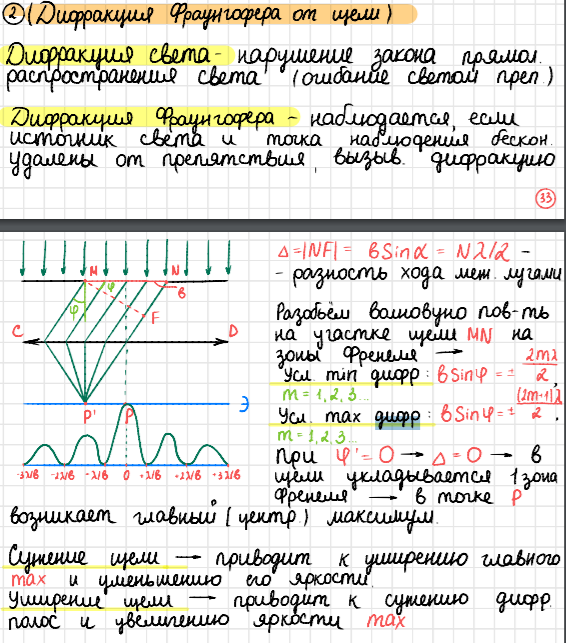 ② (Дифракция Фраунгофера от щели)
Дифракция света - нарушение закона прямол.
распространения света (огибание светом преп.)
Дифракция Фраунгофера - наблюдается, если
источник света и точка наблюдения бескон.
удалены от препятствия, вызыв. дифракцию
33
M N
φ φ b
F
C D
P' P Э
-3λ/b -2λ/b 0 +2λ/b +3λ/b
Δ=|NF| = bSinα = Nλ/2 -
- разность хода меж. лучами
Разобьём волновую пов-ть
на участке щели MN на
зоны Френеля →
Усл. min дифр: bSinφ = ± 2mλ/2,
m = 1, 2, 3...
Усл. max дифр: bSinφ = ± (2m+1)λ/2.
m = 1, 2, 3...
При φ' = 0 → Δ = 0 → в
щели укладывается 1 зона
Френеля → в точке P
возникает главный (центр) максимум.
Сужение щели → приводит к уширению главного
max и уменьшению его яркости.
Уширение щели → приводит к сужению дифр.
полос и увеличению яркости max